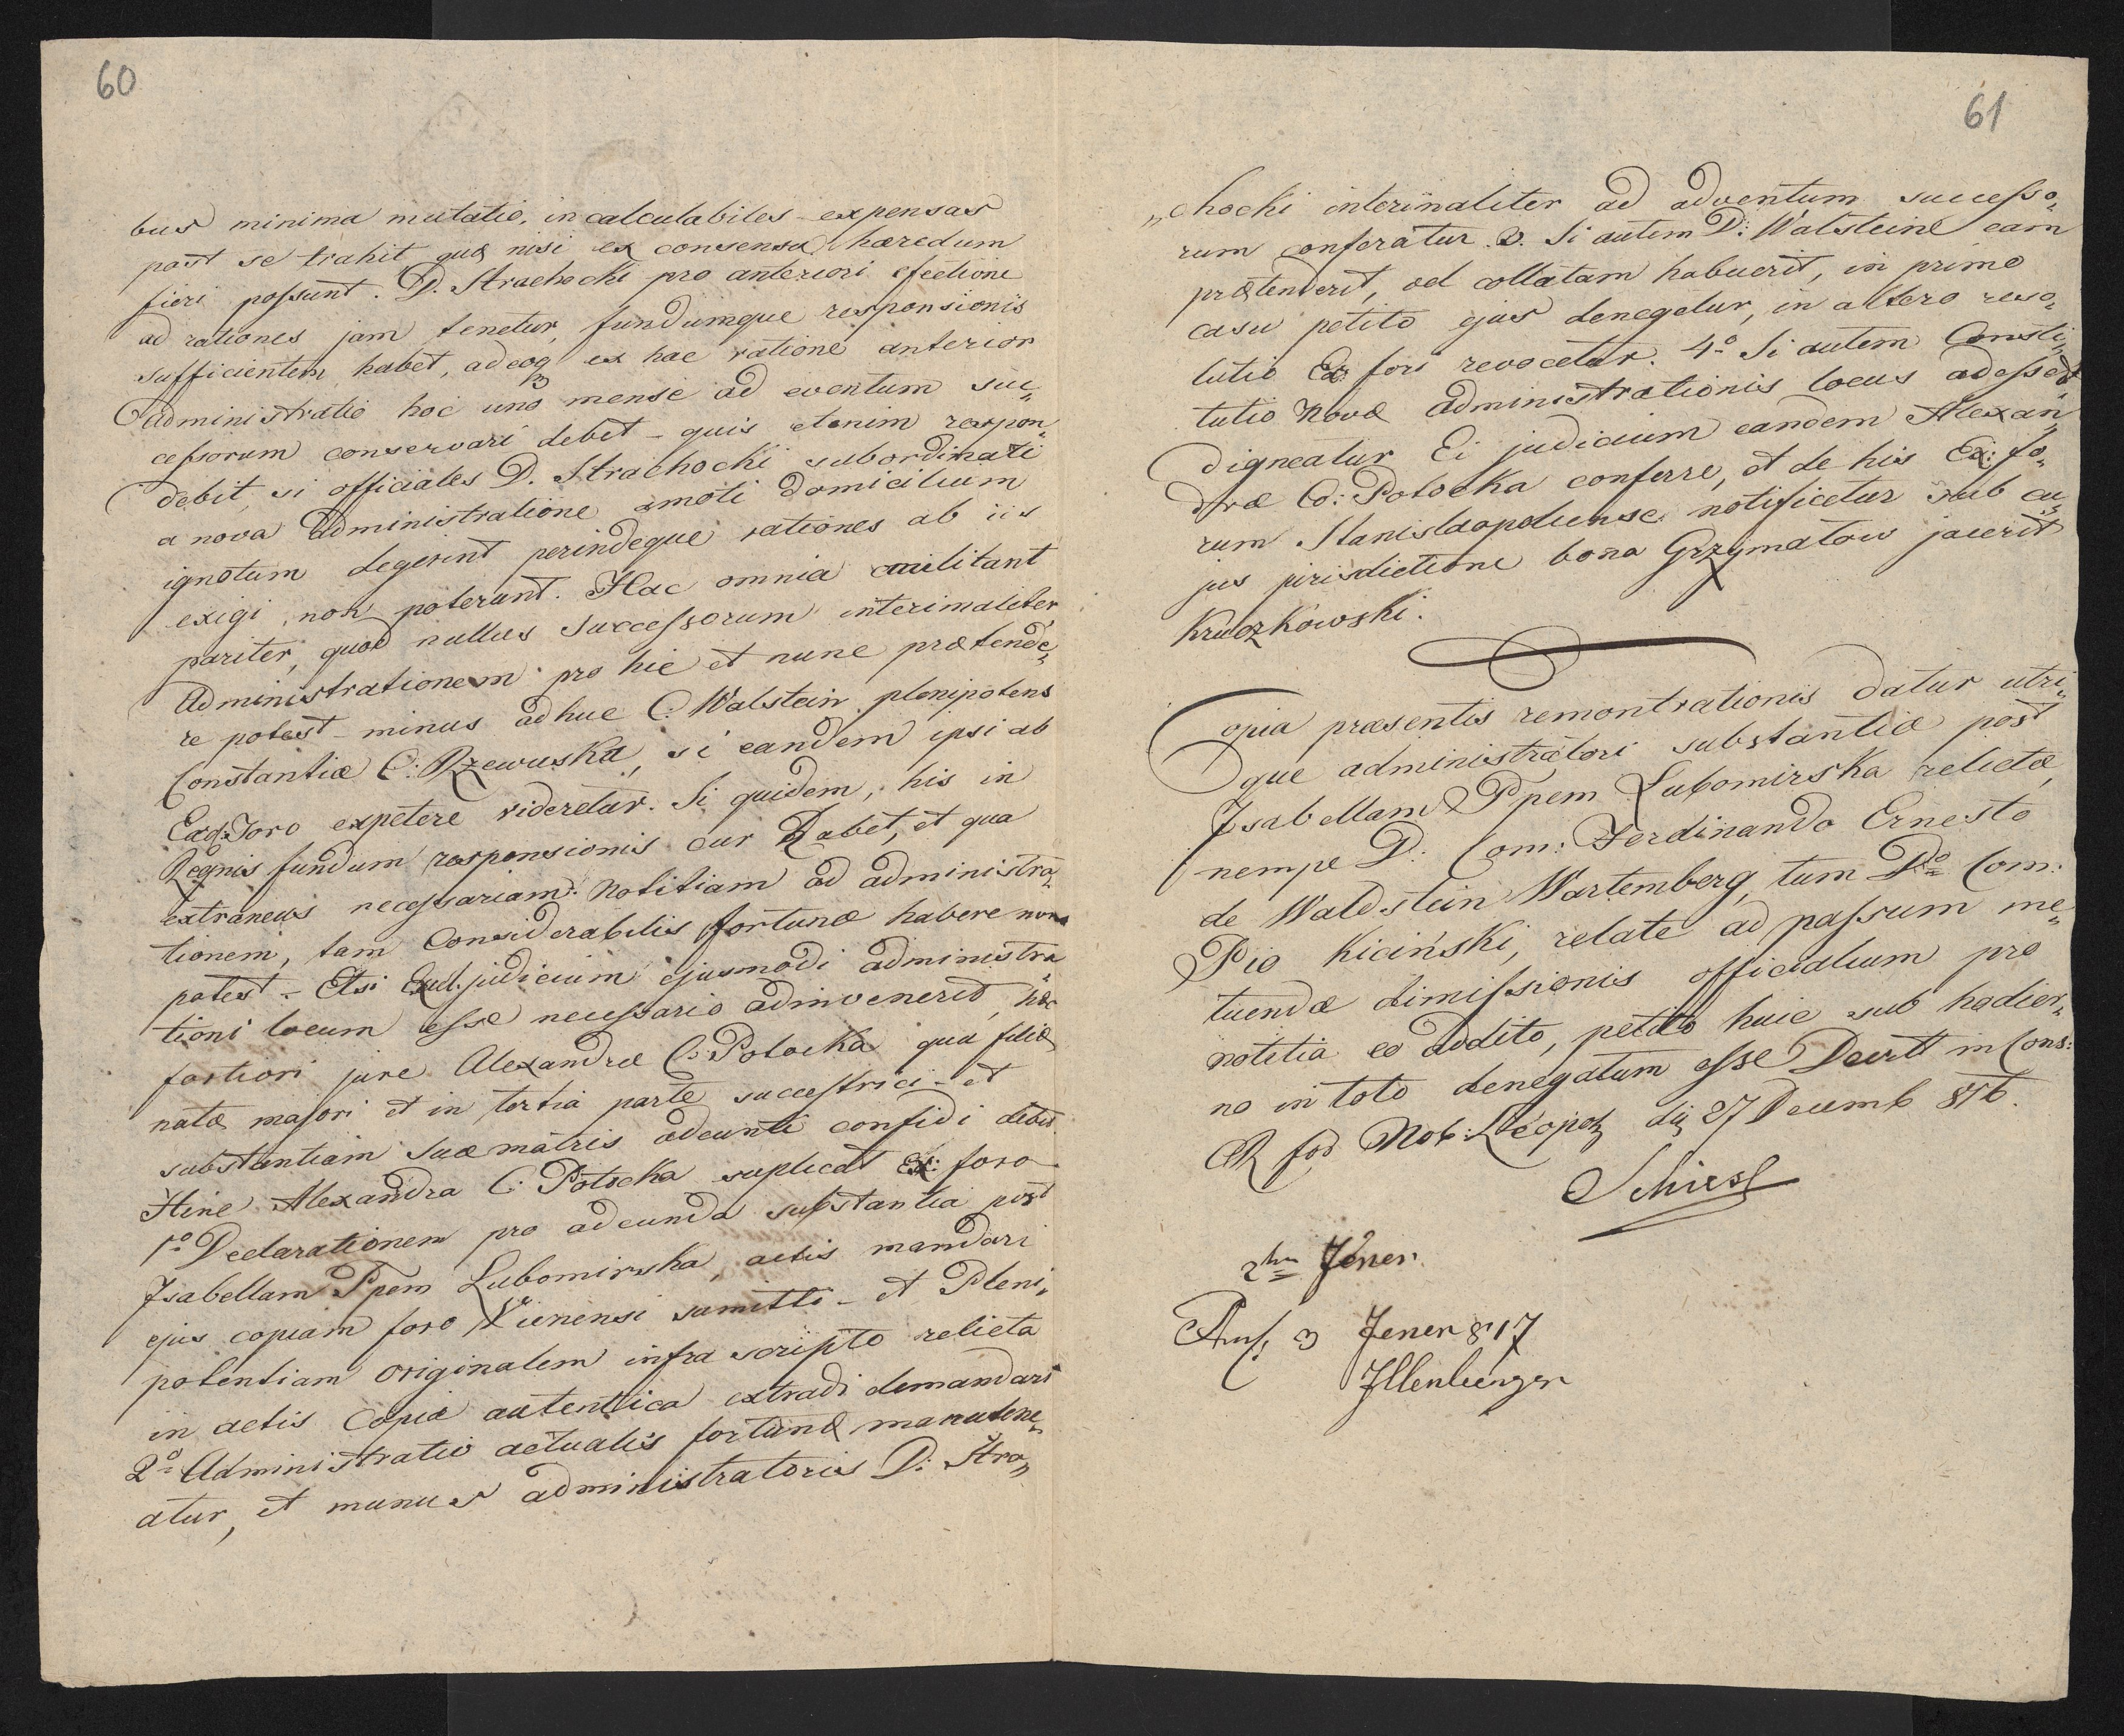 60
bus minima mutatio, incalculabiles expensas
post se trahit quæ nisi ex consensu hæredum
fieri possunt. D. Strachocki pro anteriori efectione
ad rationes jam tenetur, fundumque responsionis
sufficientem habet, adeoq ex hac ratione anterior
Administratio hoc uno mense ad eventum suc„
cessorum conservari debet – quis etenim respon„
debit, si officiales D. Strachocki subordinati
a nova administratione amoti domicilium
ignotum degerint perindeque rationes ab iis
exigi non poterunt. Hac omnia militant
pariter, quod nullus Successorum interimaliter
Administrationem pro hic et nunc prætende„
re potest – minus adhuc C: Walstein plenipotens
Constantiæ C: Rzewuska, si eandem ipsi ab
Foro expetere videretur. Si quidem, his in
Regnis fundum responsionis cur habet, et qua
extraneus necessariam notitiam ad administra„
tionem, tam Considerabilis fortunæ habere non
potest – Etsi Exd. judicium ejusmodi administra„
tioni locum esse necessario adinvenerit, hæc
fortiori jure Alexandræ C: Potocka qua filiæ
natæ majori et in tertia parte successtrici – et
substantiam suæ matris adeunti confidi debet
Hinc Alexandra C: Potocka suplicat Ex: foro
1o Declarationem pro adeunda substantia post
Isabellam Ppem Lubomirska, actis mandari
ejus copiam foro Vienensi sumitti – et Pleni„
potentiam originalem infra scripto relicta
in actis Copia autentica extradi demandari
2o Administratio actualis fortunæ manutene„
atur, et munus administratoris D: Stra„
61
„chocki interimaliter ad adventum successo„
rum conferatur. 3. Si autem D: Walsteine eam
prætenderit, vel collatam habuerit, in primo
casu petito ejus denegetur, in altero reso„
lutio Ex: fori revocetur. 4o Si autem Consti„
tutio Novæ administrationis locus adesset
Digneatur Ei judicium eandem Alexan„
dræ C: Potocka conferre, et de his Ex: fo„
rum Stanislaopoliense notificetur sub cu„
jus jurisdictione bona Grzymałow jacerit
Kruczkowski.
Copia præsentis remontrationis datur utri„
que administratori substantiæ post
Isabellam Ppem Lubomirska relictæ,
nempe D: Com: Ferdinando Ernesto
de Waldstein Wartemberg, tum Do Com:
Pio Kiciński, relate ad passum me„
tuendæ dimissionis officialium pro
notitia eo addito, petito huic sub hodier„
no in toto denegatum esse Decrtt in Cons:
CR for Nob: Leopol die 27 Decemb 816.
Schiesl
2tn Jener
3 Jener 817
Illenberger